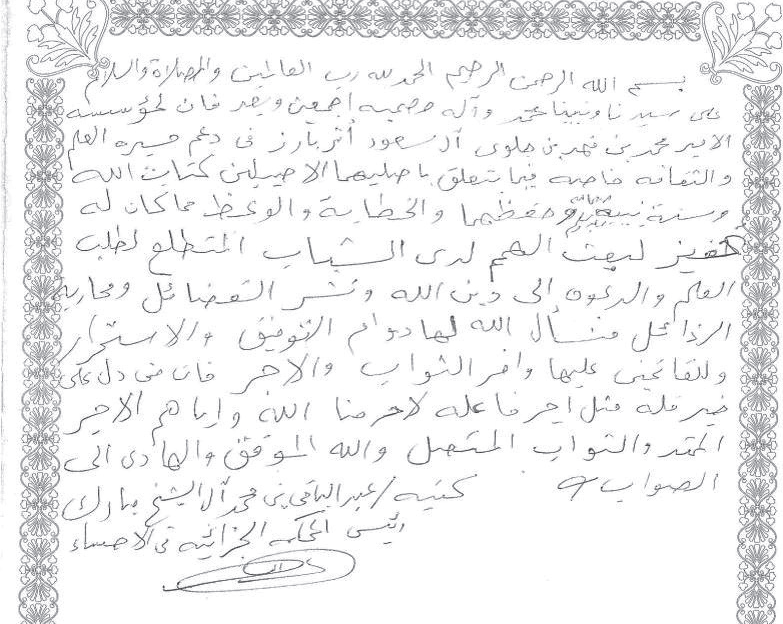 بسم الله الرحمن الرحيم الحمد لله رب العالمين والصلاة والسلام
على سيدنا ونبينا محمد وآله وصحبه اجمعين وبعد فان لمؤسسه
الامير محمد بن فهد بن جلوى آل سعود أثر بارز فى دعم مسيره العلم
والثقافه خاصه فيما يتعلق باصليهما الاصيلين كتاب الله
وسنة نبيه وحفظهما والخطابة والوعظ مما كان له
تحفيز لبعث الهمم لدى الشباب المتطلع لطلب
العلم والدعوه الى دين الله ونشر الفضائل ومحاربة
الرذائل فنسأل الله لها دوام التوفيق والاستمرار
وللقائمين عليها وافر الثواب والاجر فان من دل على
خير فله مثل اجر فاعله لاحرمنا الله واياهم الاجر
الممتد والثواب المتصل والله الموفق والهادى الى
الصواب
كتبه / عبد الباقى بن محمد آل الشيخ مبارك
رئيس المحكمه الجزائيه فى الاحساء